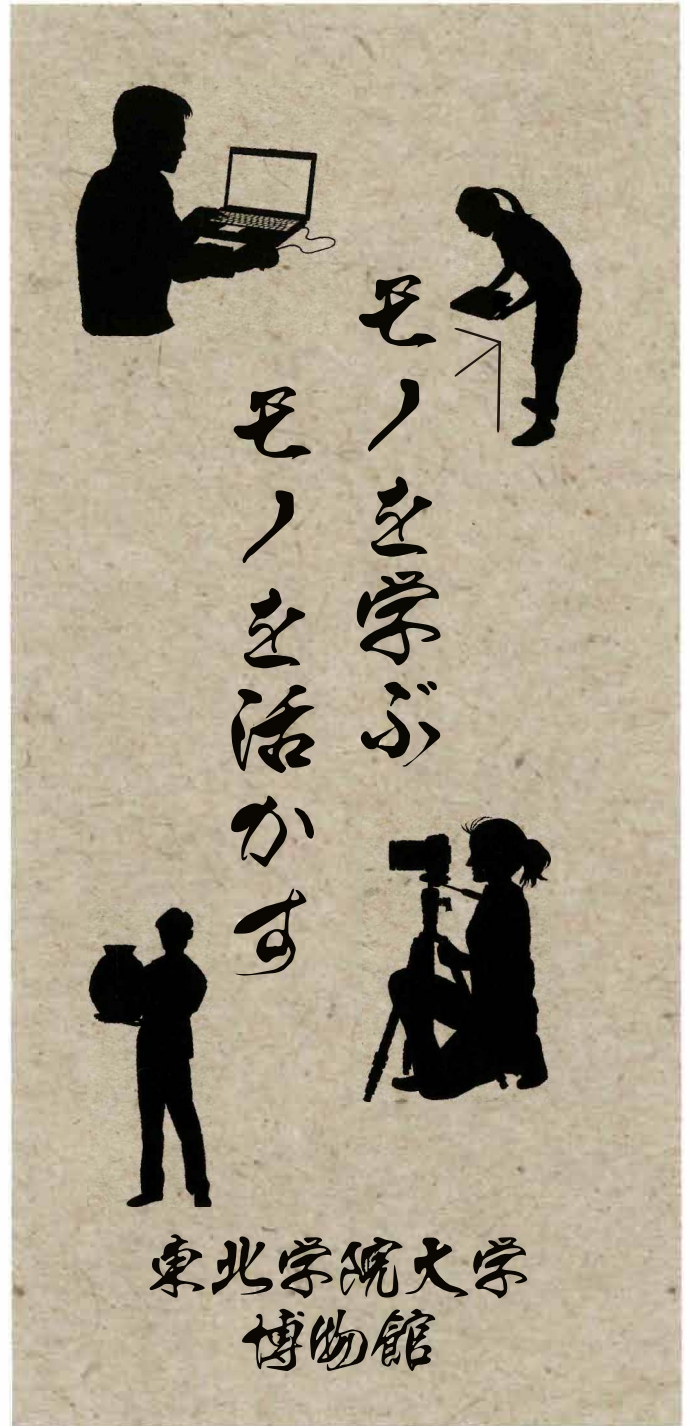 モノを学ぶ
モノを活かす
東北学院大学
博物館